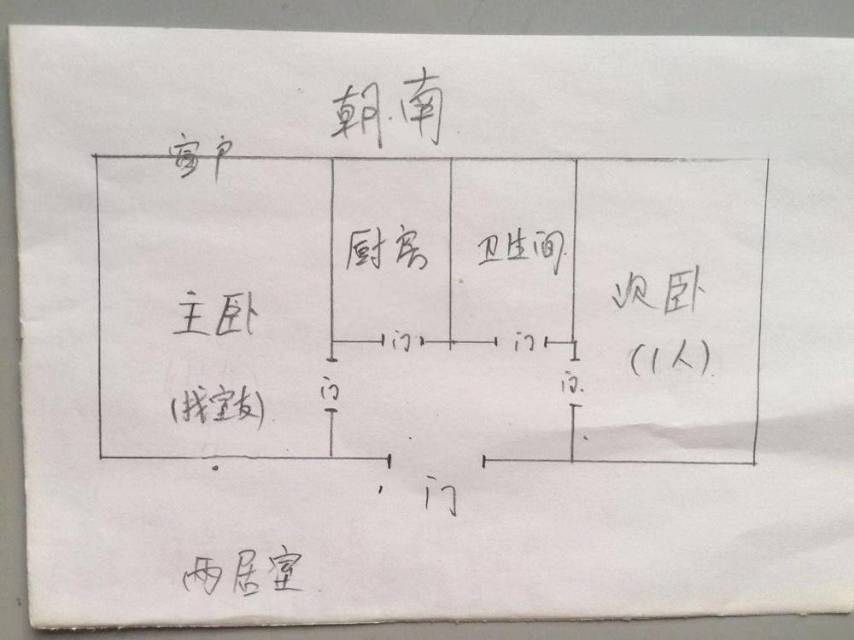 朝南
厨房
卫生间
次卧
(1人)
主卧
(找室友)
门
门
门
门
门
两居室